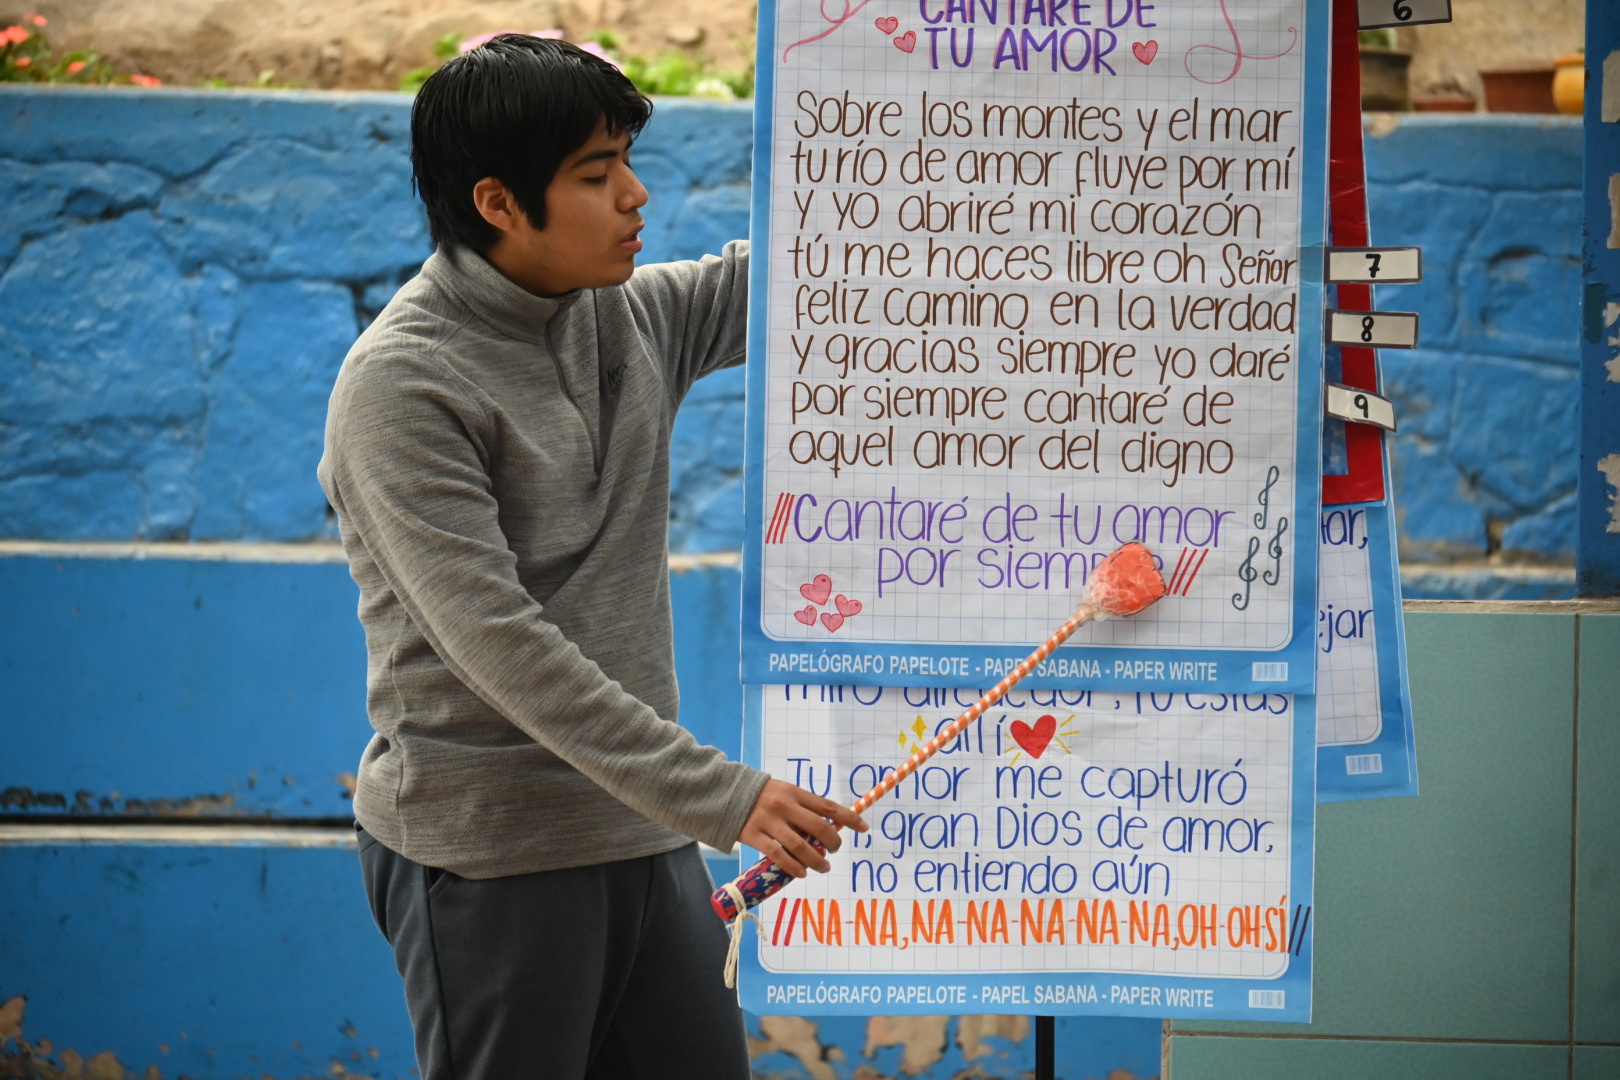 CANTARÉ DE
TU AMOR
Sobre los montes y el mar
tu río de amor fluye por mí
y yo abriré mi corazón
tú me haces libre oh Señor
feliz camino en la verdad
y gracias siempre yo daré
por siempre cantaré de
aquel amor del digno
///Cantaré de tu amor
por siempre///
PAPELÓGRAFO PAPELOTE - PAPEL SABANA - PAPER WRITE
miro alrededor, Tú estás
allí
Tu amor me capturó
gran Dios de amor,
no entiendo aún
//NA-NA, NA-NA-NA-NA-NA, OH-OH-SÍ//
PAPELÓGRAFO PAPELOTE - PAPEL SABANA - PAPER WRITE
6
7
8
9
ejar